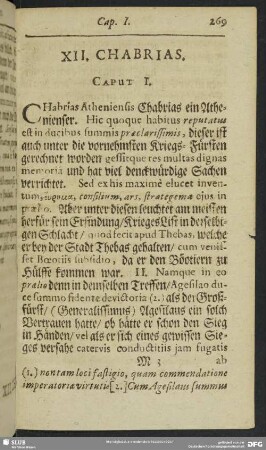 Cap. I. 269
XII. CHABRIAS.
CAPUT I.
CHabrias Atheniensis Chabrias ein Athe-
nienser. Hic quoque habitus reputatus
est in ducibus summis præclarissimis, dieser ist
auch unter die vornehmsten Kriegs-Fürsten
gerechnet worden gessitque res multas dignas
memoriâ und hat viel denckwürdige Sachen
verrichtet. Sed ex his maximè elucet inven-
tum, consilium, ars, strategema ejus in
prælio. Aber unter diesen leuchtet am meisten
herfür sein Erfindung / Kriegs List in derselbi-
gen Schlacht / quod fecit apud Thebas, welche
er bey der Stadt Thebas gehalten / cum venis-
set Bœotiis subsidio, da er den Böotiern zu
Hülffe kommen war. II. Namque in eo
prælio denn in demselben Treffen / Agesilao du-
ce summo fidente de victoria (2.) als der Groß-
fürst / (Generalissimus) Agesilaus ein solch
Vertrauen hatte / ob hätte er schon den Sieg
in Händen / vel als er sich eines gewissen Sie-
ges versahe catervis conductitiis jam fugatis
M 3 ab
(1.) non tam loci fastigio, quam commendatione
imperatoriæ virtutis [2.] Cum Agesilaus summus